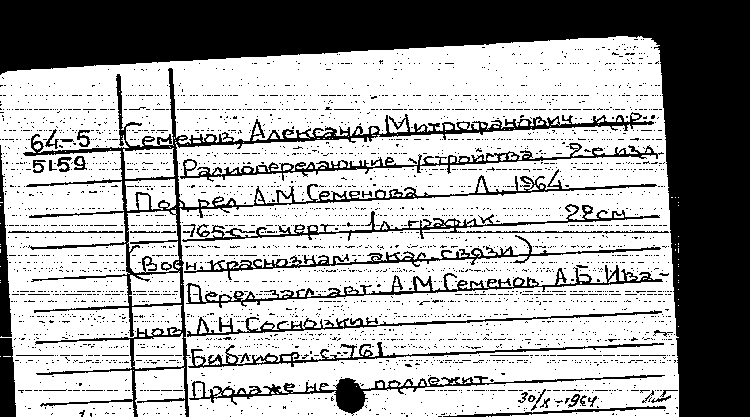 64-5 Семенов, Александр Митрофанович и др.:
5159 Радиопередающие устройства. 2-е изд.
Под ред. А.М. Семенова. Л., 1964.
765 с. с черт.; 1 л. график. 22 см
(Воен. краснознам. акад. связи).
Перед загл. авт.: А.М. Семенов, А.Б. Ива-
нов, Л.Н. Сосновкин.
Библиогр.: с. 761.
Продаже не подлежит.
30/X-1964